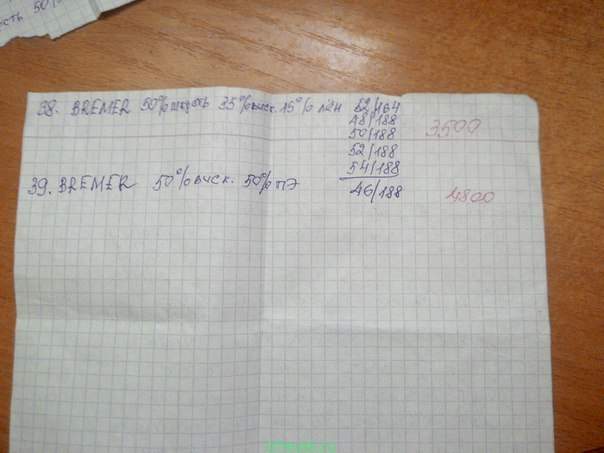 сть 50%
38. BREMER 50% шерсть 35% виск. 15% лён 52/164 3500
48/188
50/188
52/188
54/188
39. BREMER 50% виск. 50% ПЭ 46/188 4800